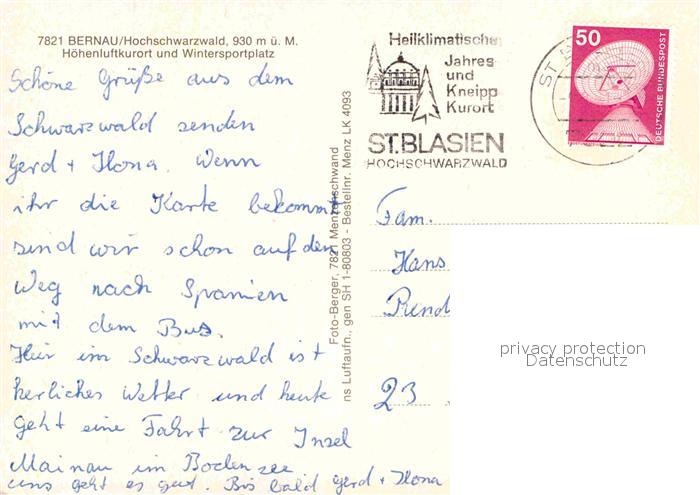 7821 BERNAU/Hochschwarzwald, 930 m ü. M.
Höhenluftkurort und Wintersportplatz
Schöne Grüße aus dem
Schwarzwald senden
Gerd + Ilona. Wenn
ihr die Karte bekommt
sind wir schon auf den
Weg nach Spanien
mit dem Bus.
Hier im Schwarzwald ist
herliches Wetter und heute
geht eine Fahrt zur Insel
Mainau im Bodensee
uns geht es gut. Bis bald Gerd + Ilona
Foto-Berger, 7821 Menzenschwand
ns Luftaufn., gen SH 1-80803 - Bestellnr. Menz LK 4093
Heilklimatischer
Jahres-
und
Kneipp
Kurort
ST.BLASIEN
HOCHSCHWARZWALD
50
DEUTSCHE BUNDESPOST
Fam.
Hans
23
privacy protection
Datenschutz